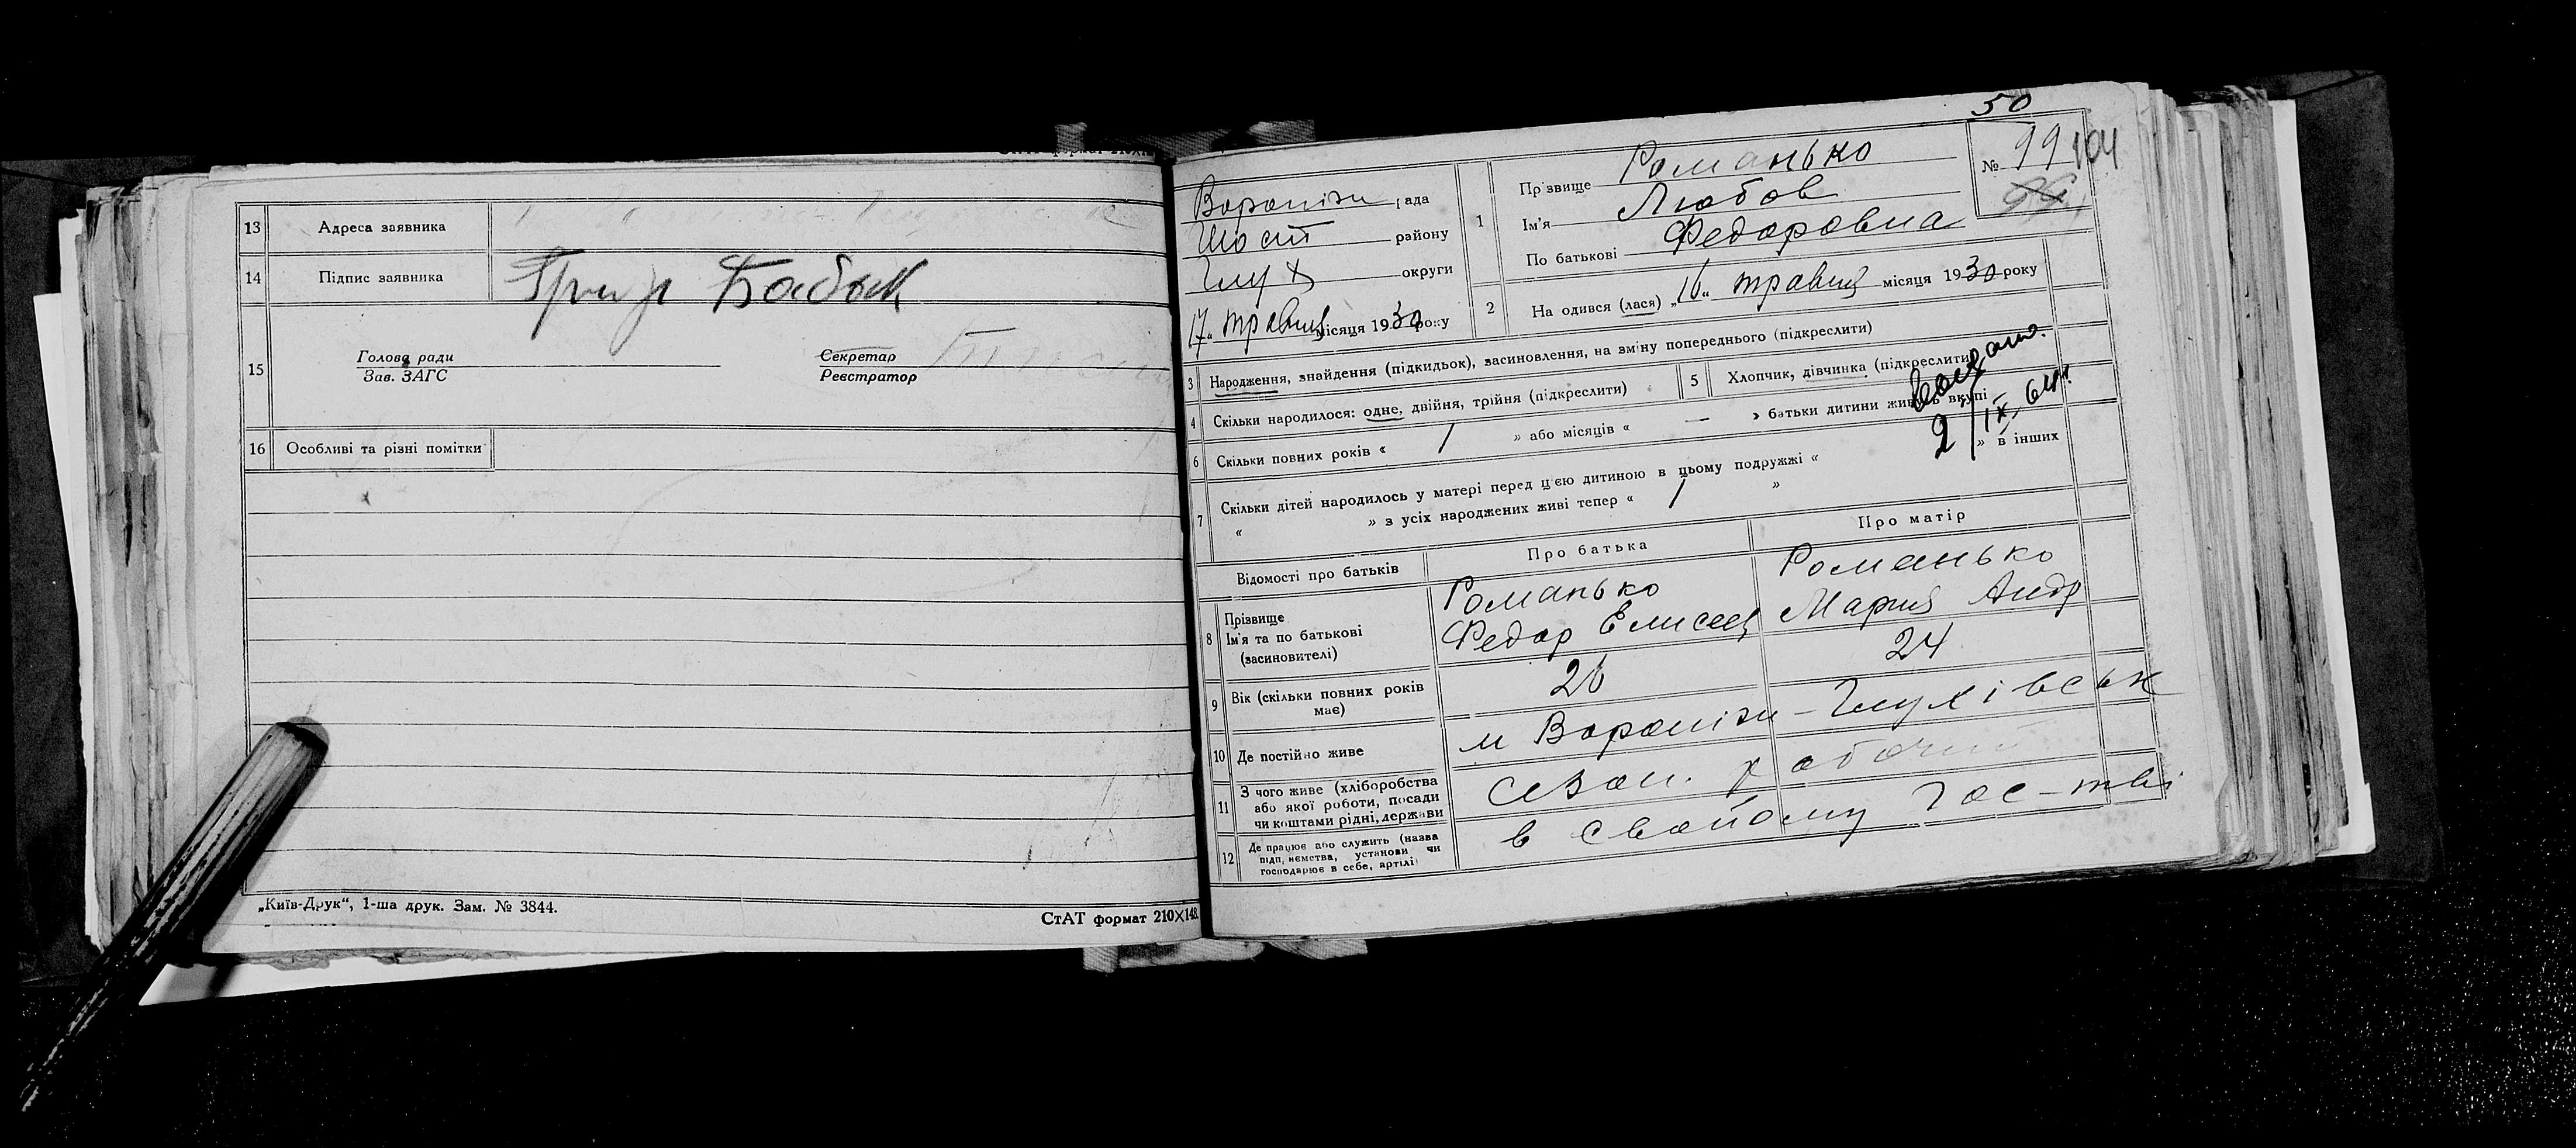 13 Адреса заявника
14 Підпис заявника
15 Голова ради
Зав. ЗАГС
Секретар
Реєстратор
16 Особливі та різні помітки
„Київ-Друк“, 1-ша друк. Зам. № 3844.
СтАТ формат 210X148.
50
Вороніжи рада
Шост району
Глух округи
17 травня місяця 1930 року
1 Прізвище Романько
Ім'я Любов
По батькові Федоровна
№ 99 104
2 На одився (лася) „16“ травня місяця 1930 року
3 Народження, знайдення (підкидьок), засиновлення, на зміну попереднього (підкреслити)
4 Скільки народилося: одне, двійня, трійня (підкреслити)
5 Хлопчик, дівчинка (підкреслити)
6 Скільки повних років « 1 » або місяців « — » батьки дитини живуть вкупі
2/IX 64
7 Скільки дітей народилось у матері перед цією дитиною в цьому подружжі « » в інших
« » з усіх народжених живі тепер « 1 »
Відомості про батьків Про батька Про матір
8 Прізвище Романько Романько
Ім'я та по батькові Федор Елисеев Мария Андр
(засиновителі)
9 Вік (скільки повних років має) 26 24
10 Де постійно живе м Вороніжи - Глухівськ
11 З чого живе (хліборобства
або якої роботи, посади
чи коштами рідні, держави
сезон. рабочий
12 Де працює або служить (назва
підп, иємства, установи чи
господарює в себе, артілі)
в свойому гос-тві